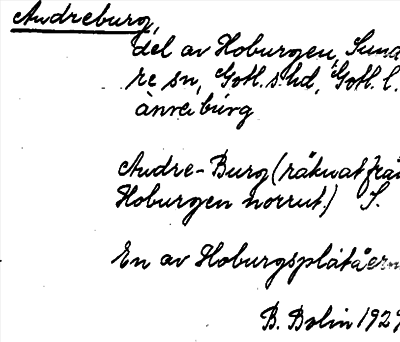 Andreburg,
del av Hoburgen, Sund
re sn, Gotl. s. hd, Gotl. l.
ànrebùrg
Andre-Burg (räknat frå
Hoburgen norrut.) S.
En av Hoburgsplåtåern
B. Bolin 1929